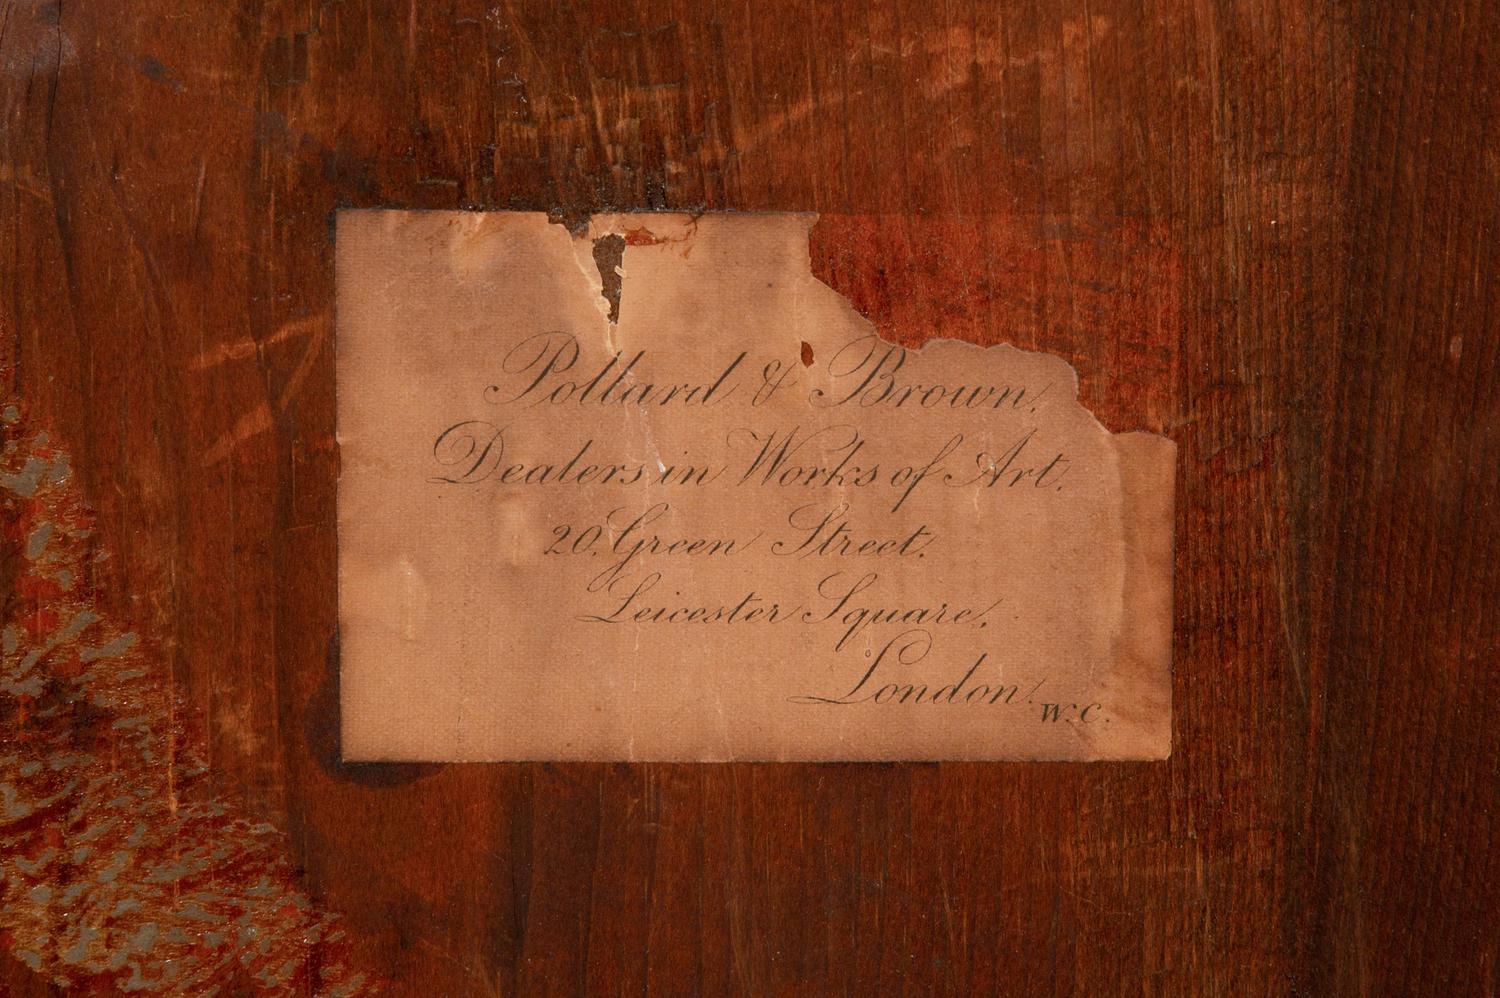 Pollard & Brown,
Dealers in Works of Art.
20, Green Street.
Leicester Square,
London.
W.C.